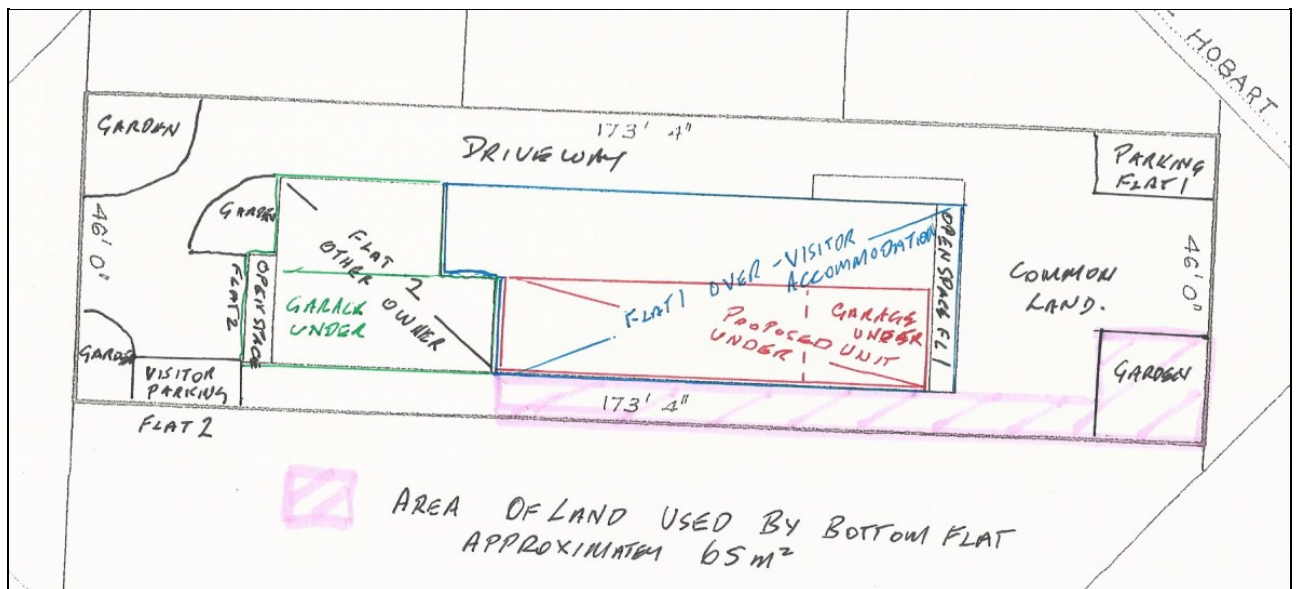 HOBART
GARDEN
173' 4"
DRIVEWAY
PARKING
FLAT 1
46' 0"
GARDEN
FLAT 2
OTHER OWNER
OPEN SPACE
FLAT 2
GARAGE
UNDER
FLAT 1 OVER - VISITOR
ACCOMMODATION
PROPOSED UNIT
UNDER
GARAGE
UNDER
OPEN SPACE FL 1
COMMON
LAND.
46' 0"
GARDEN
GARDEN
VISITOR
PARKING
FLAT 2
173' 4"
AREA OF LAND USED BY BOTTOM FLAT
APPROXIMATELY 65m²